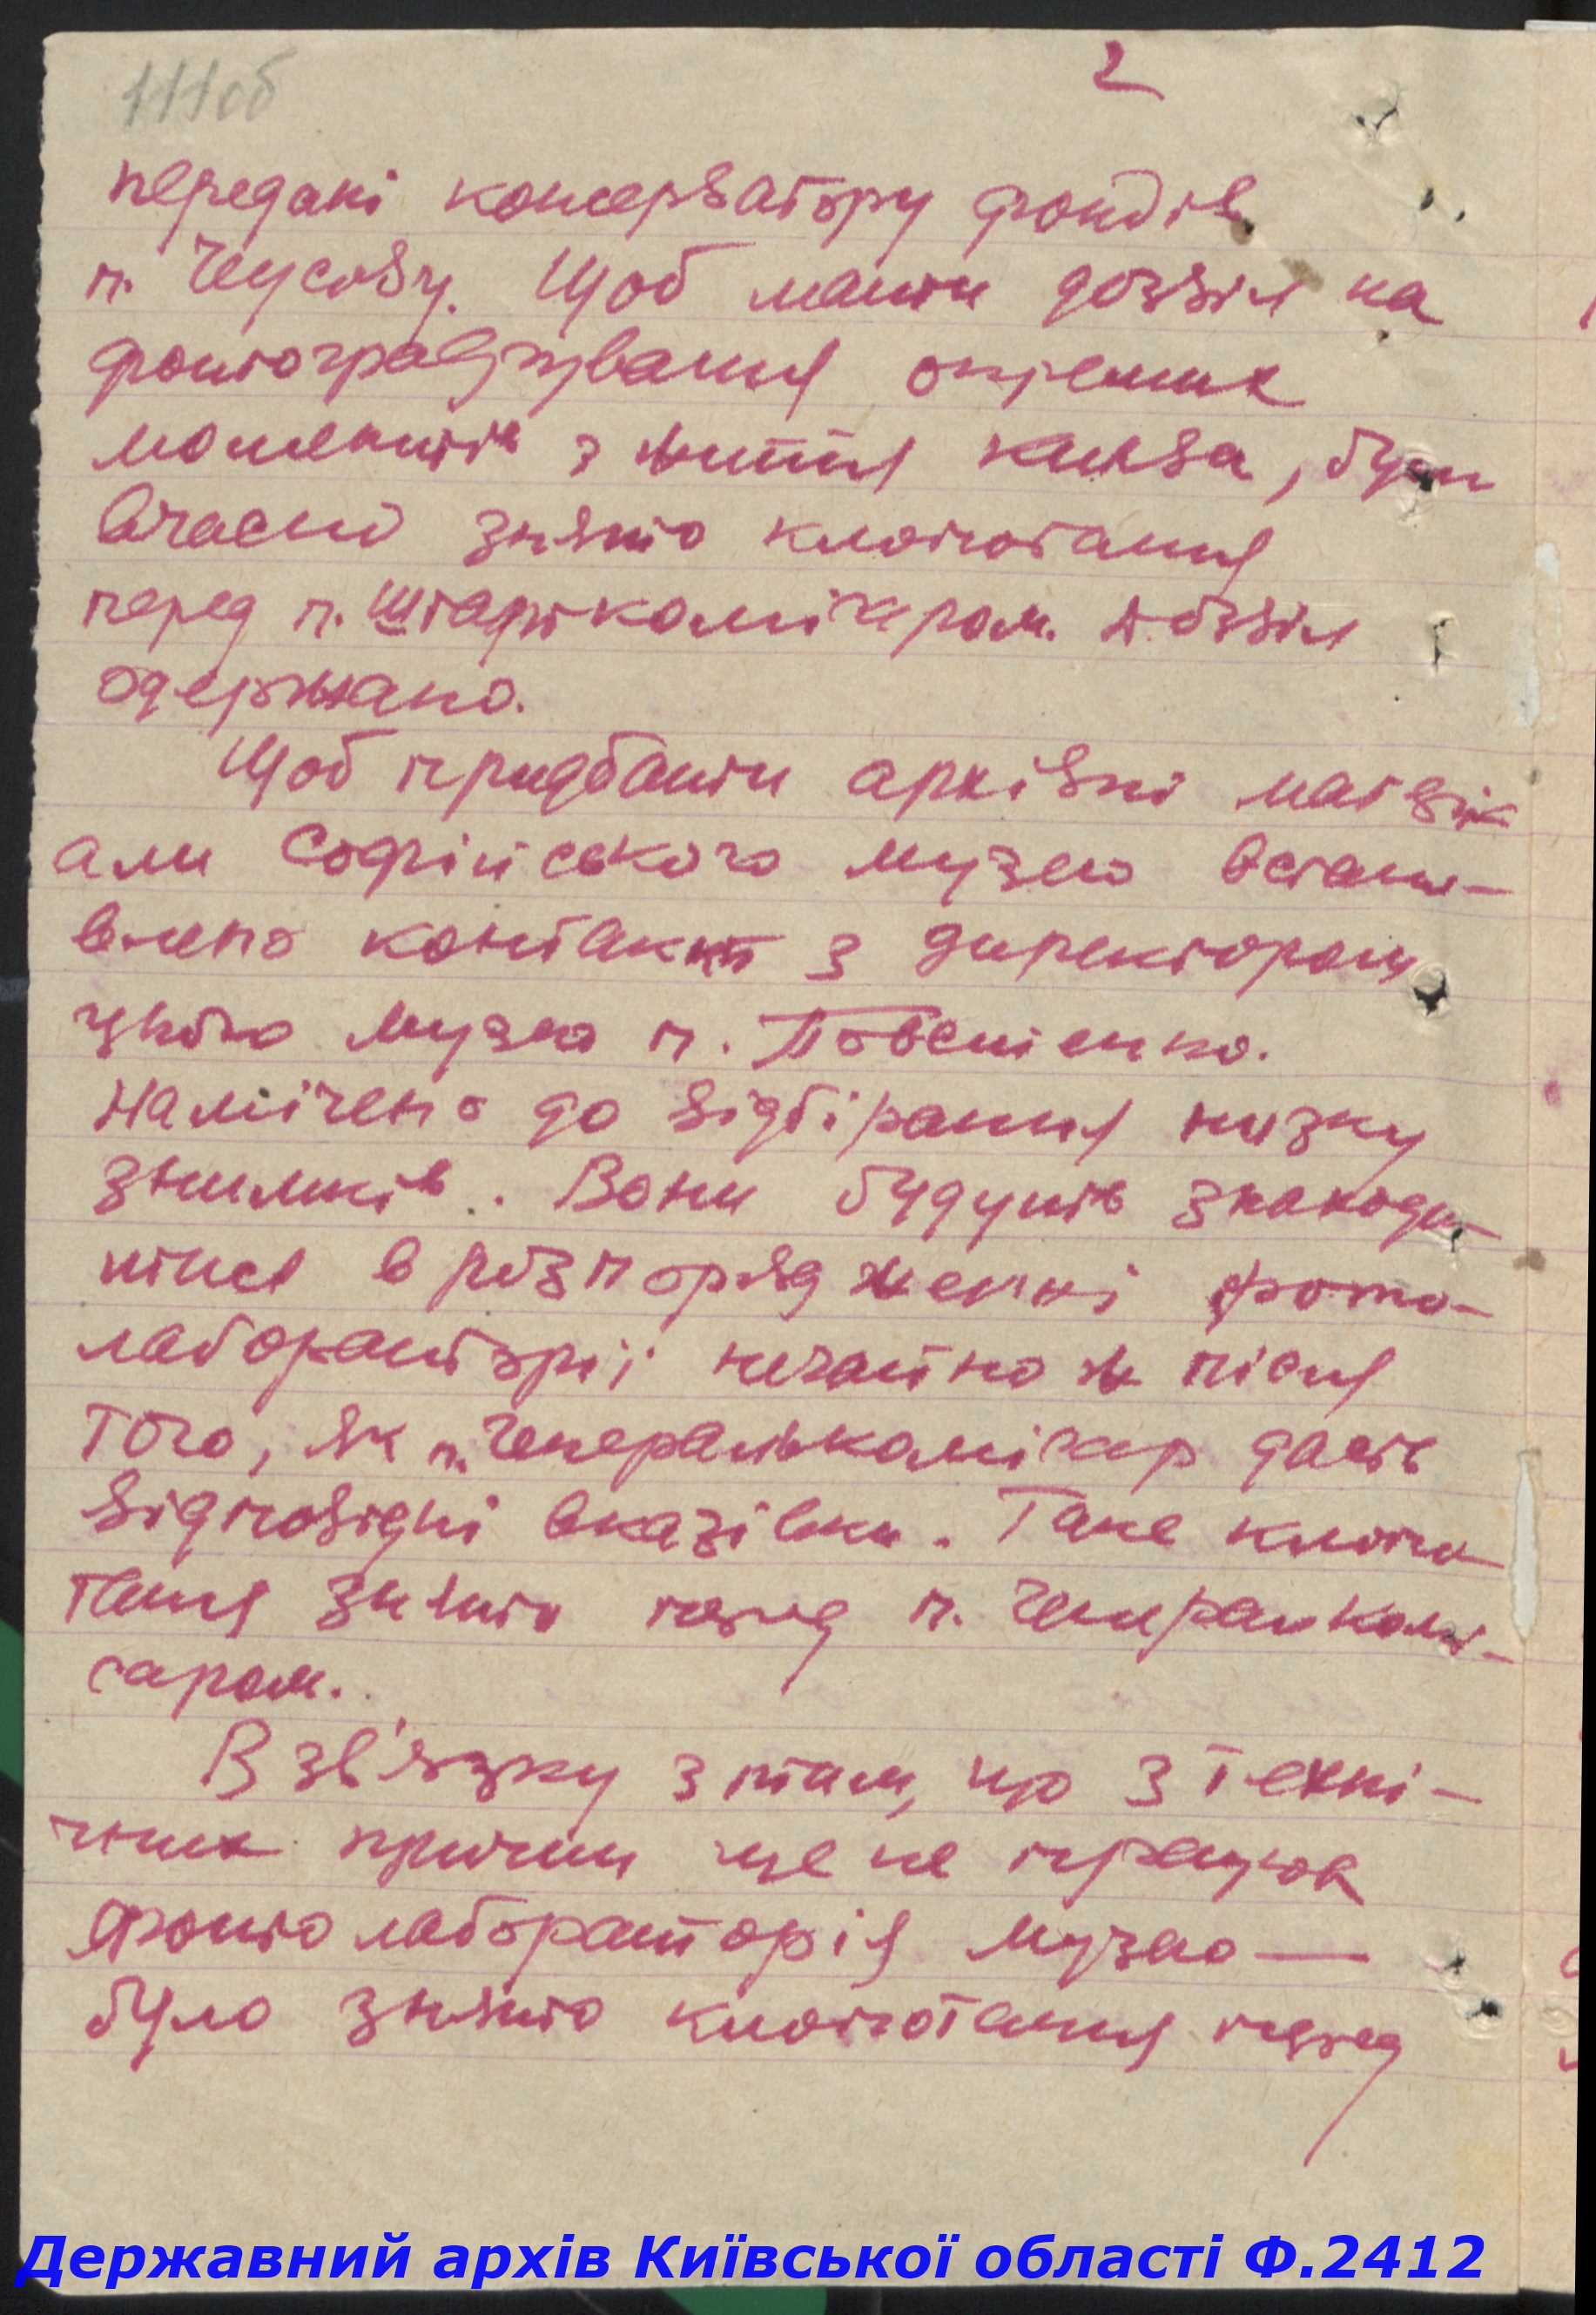 111об
2
передані консерватору фондів
п. Чусову. Щоб мати дозвіл на
фотографування окремих
моментів з життя Києва, було
вчасно знято клопотання
перед п. Штадткомісаром. Дозвіл
одержано.
Щоб придбати архівні матері-
али Софійського музею встано-
влено контакт з директором
цього музею п. Повстенко.
Намічено до відбірання низку
знимків. Вони будуть знаходи-
тись в розпорядженні фото-
лабораторії негайно ж після
того, як п. Генералькомісар дасть
відповідні вказівки. Таке клопо-
тання знято перед п. Генералкомі-
саром.
В зв'язку з тим, що з техні-
чних причин ще не працює
фотолабораторія музею —
було знято клопотання перед
Державний архів Київської області Ф.2412